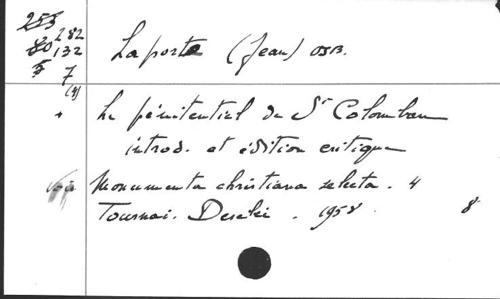 253
80 282
5 132
7
(4)
Laporte (Jean) OSB.
+ Le pénitentiel de St Colomban
introd. et édition critique
Monumenta christiana selecta. 4
Tournai. Desclée. 1958 8